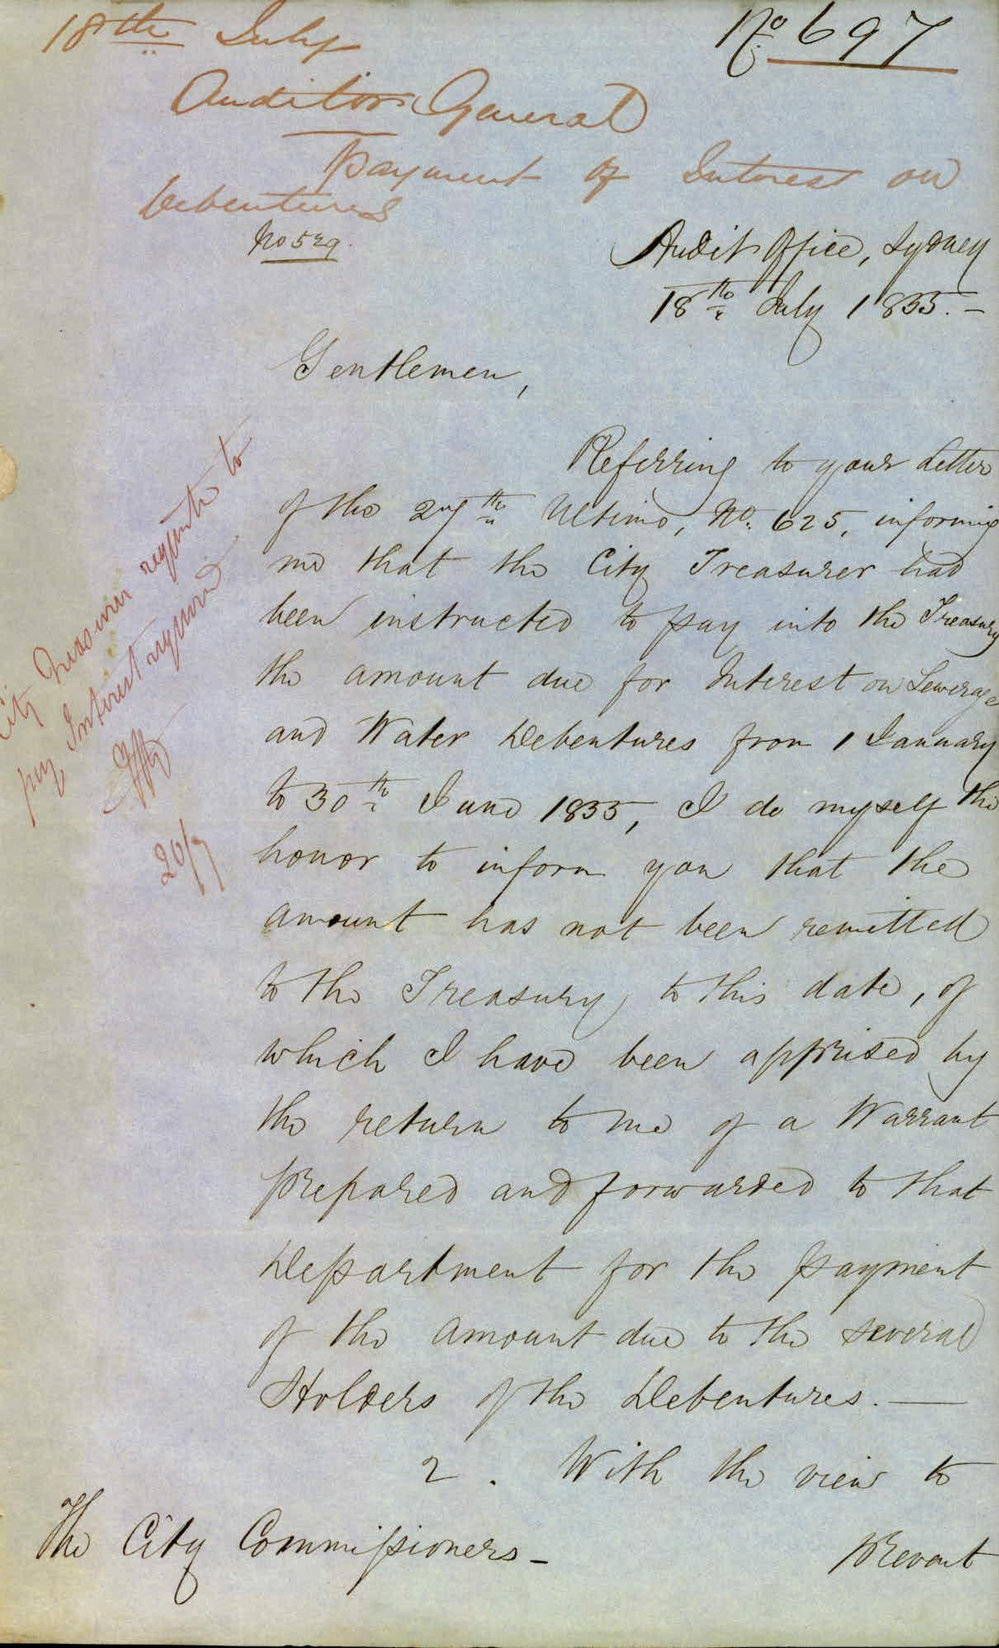 18th July
No. 697
Auditor General
Payment of Interest on
Debentures
No 529.
Audit Office, Sydney
18th July 1855.-
Gentlemen,
Referring to your Letter
of the 27th Ultimo, No. 625, informing
me that the City Treasurer had
been instructed to pay into the Treasury
the amount due for Interest on Sewerage
and Water Debentures from 1 January
to 30th June 1855, I do myself the
honor to inform you that the
amount has not been remitted
to the Treasury to this date, of
which I have been apprised by
the return to me of a Warrant
prepared and forwarded to that
Department for the payment
of the amount due to the several
Holders of the Debentures. —
2. With the view to
The City Commissioners-
prevent
City Treasurer requests to
pay Interest required
20/7